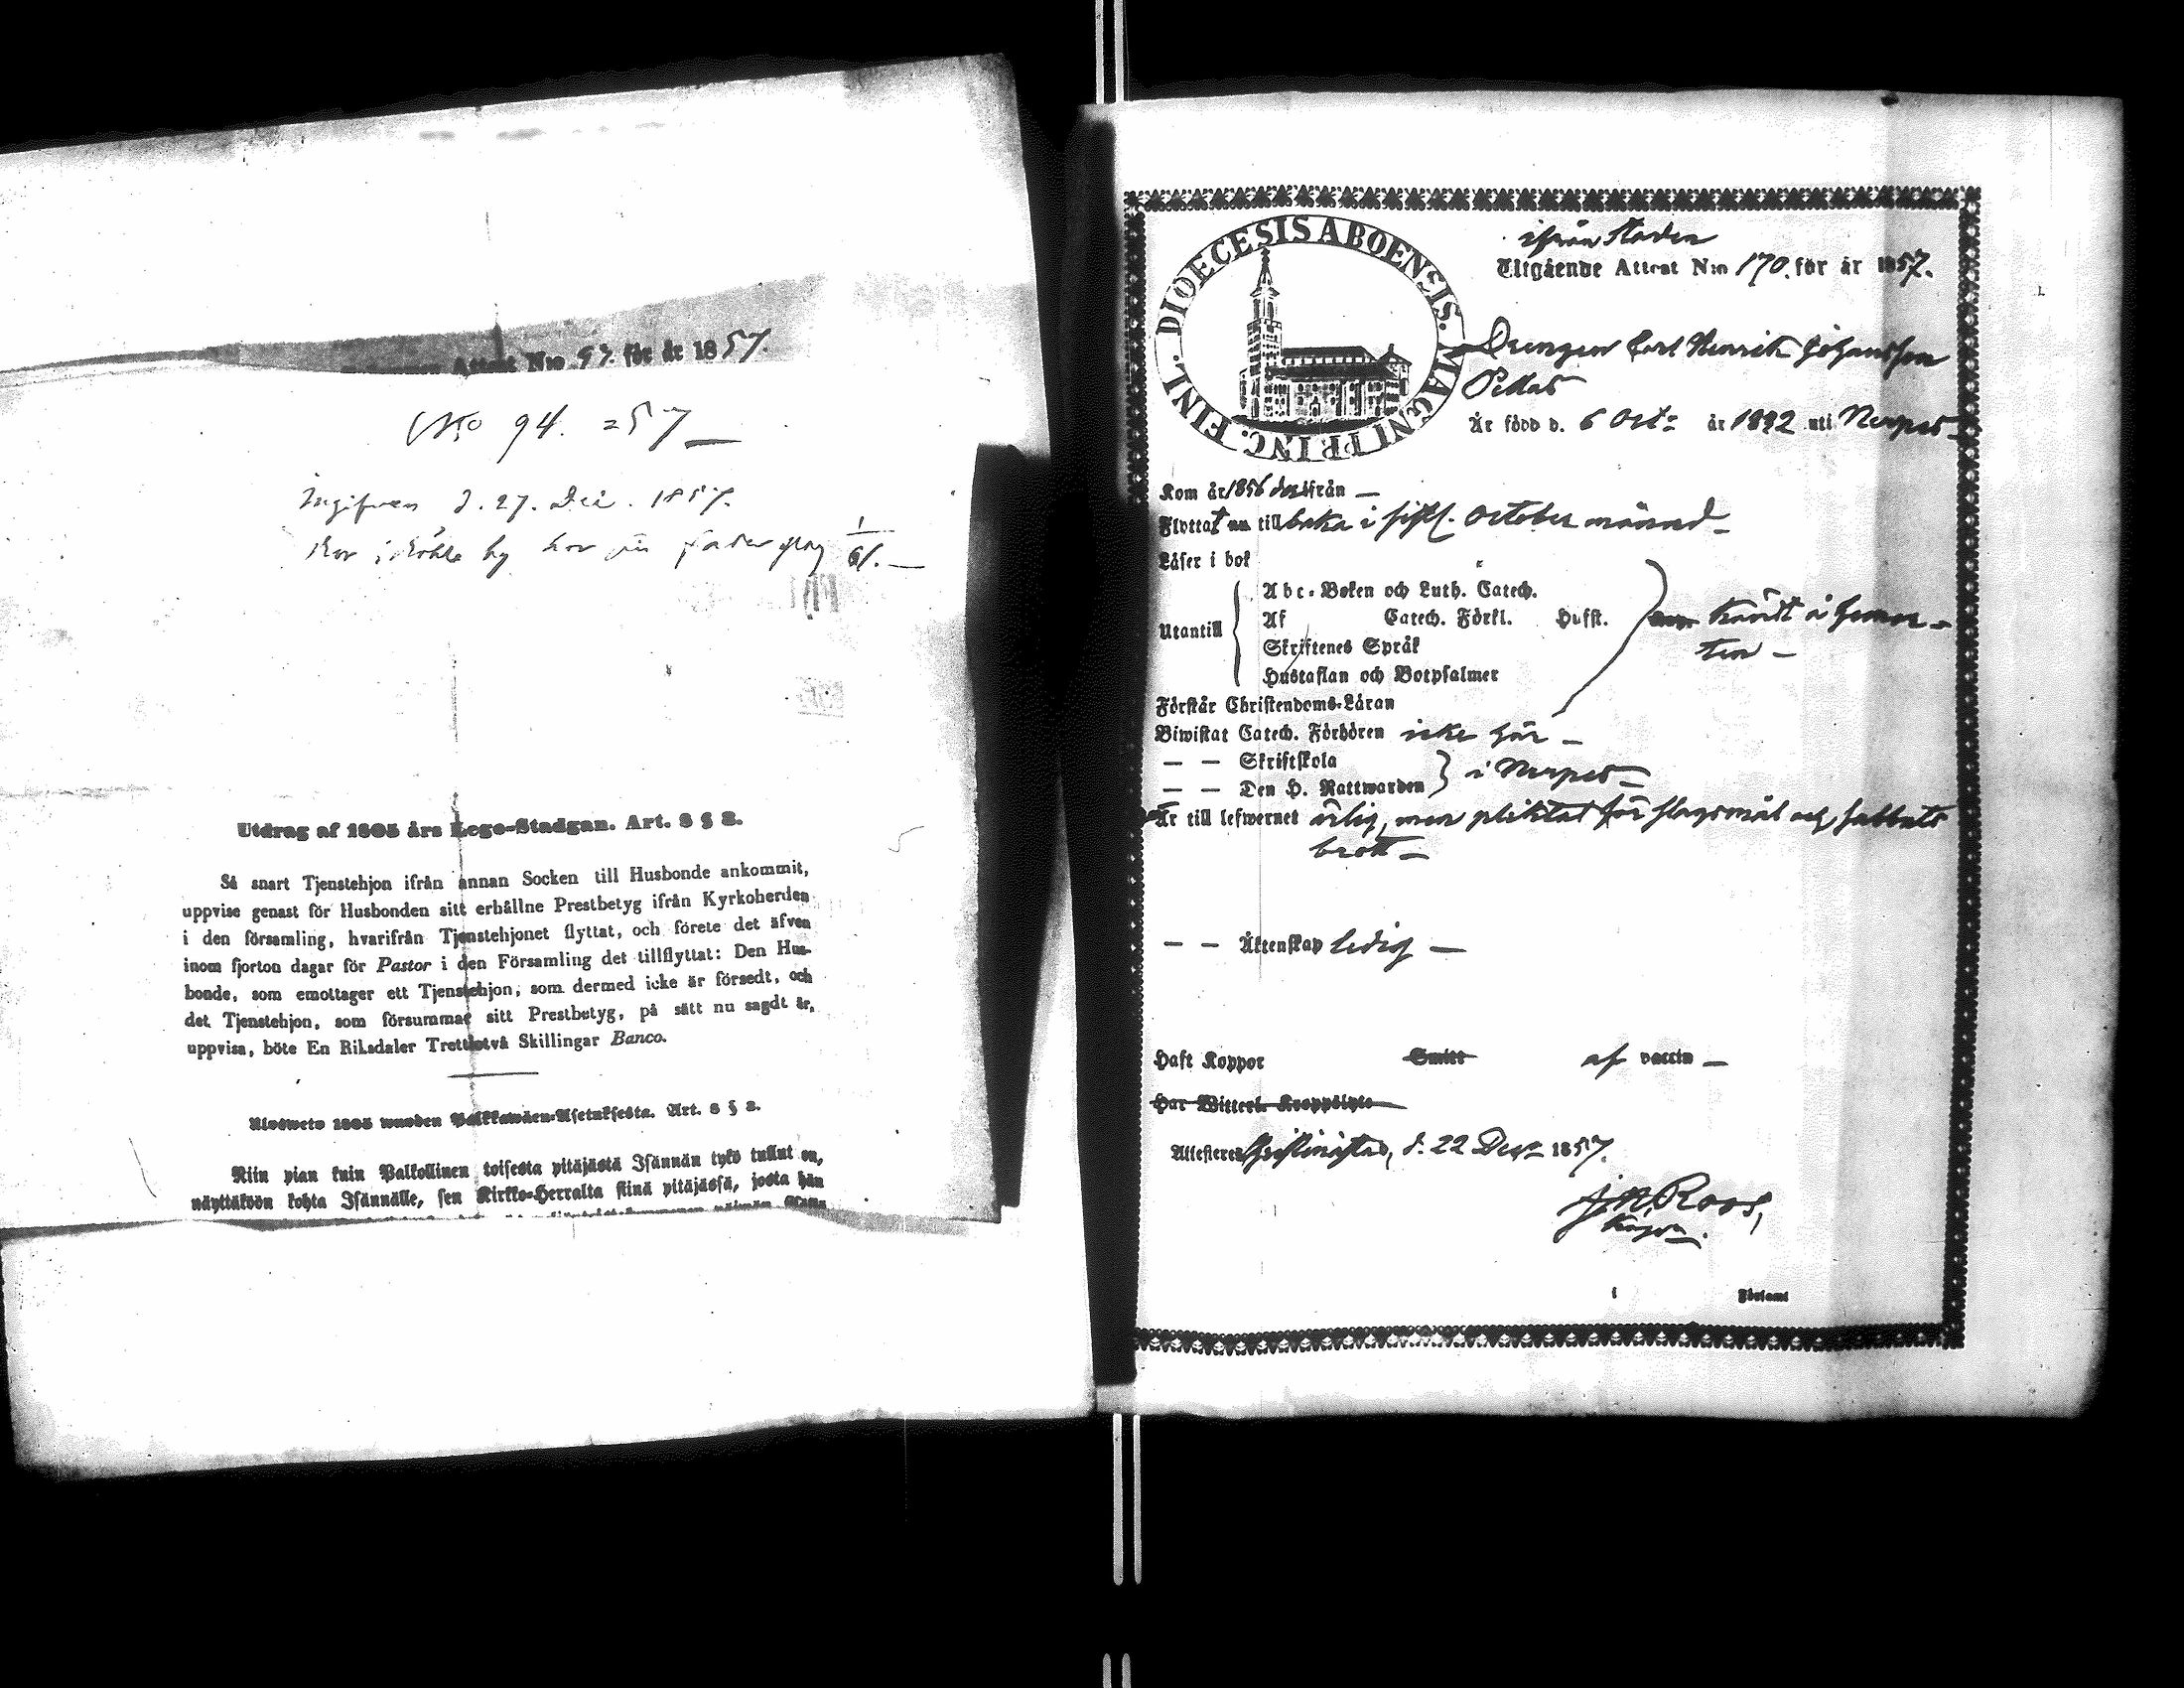 Attest N:o 97. för år 1857.
N:o 94. 57
Ingifven d. 27. Dec. 1857.
Bor i by hos sin fader
Utdrag af 1805 års Lego-Stadgan. Art. 8 § 2.
Så snart Tjenstehjon ifrån annan Socken till Husbonde ankommit,
uppvise genast för Husbonden sitt erhållne Prestbetyg ifrån Kyrkoherden
i den församling, hvarifrån Tjenstehjonet flyttat, och förete det äfven
inom fjorton dagar för Pastor i den Församling det tillflyttat: Den Hus-
bonde, som emottager ett Tjenstehjon, som dermed icke är försedt, och
det Tjenstehjon, som försummar sitt Prestbetyg, på sätt nu sagdt är,
uppvisa, böte En Riksdaler Trettiotvå Skillingar Banco.
Ulosweto 1805 wuoden Palkkawäen-Asetuksesta. Art. 8 § 2.
Niin pian kuin Palkollinen toisesta pitäjästä Isännän tykö tullut on,
näyttäköön kohta Isännälle, sen Kirkko-Herralta siinä pitäjässä, josta hän
DIOECESIS ABOENSIS. MAGNI PRINC. FINL.
ifrån Staden
Utgående Attest N:o 170. för år 1857.
Drengen Carl Henrik Johansson
Är född d. 6 Oct: år 1832 uti Nerpes
Kom år 1856 derifrån —
Flyttat nu tillbaka i sistl. October månad —
Läser i bok
Abc-Boken och Luth. Catech.
Utantill Af Catech. Förkl. Hufst.
Skriftenes Språk
Hustaflan och Botpsalmer
Förstår Christendoms-Läran
Biwistat Catech. Förhören icke här —
— — Skriftskola
— — Den H. Nattwarden } i Nerpes —
Är till lefwernet ärlig, men pliktat för slagsmål och sabbats
brott —
— — Äktenskap ledig —
Haft Koppor Smitt af vaccin —
Har Witterl. Kroppslyte
Attesteres Christinestad, d. 22 Dec: 1857.
J. N. Roos,
i Förſamt